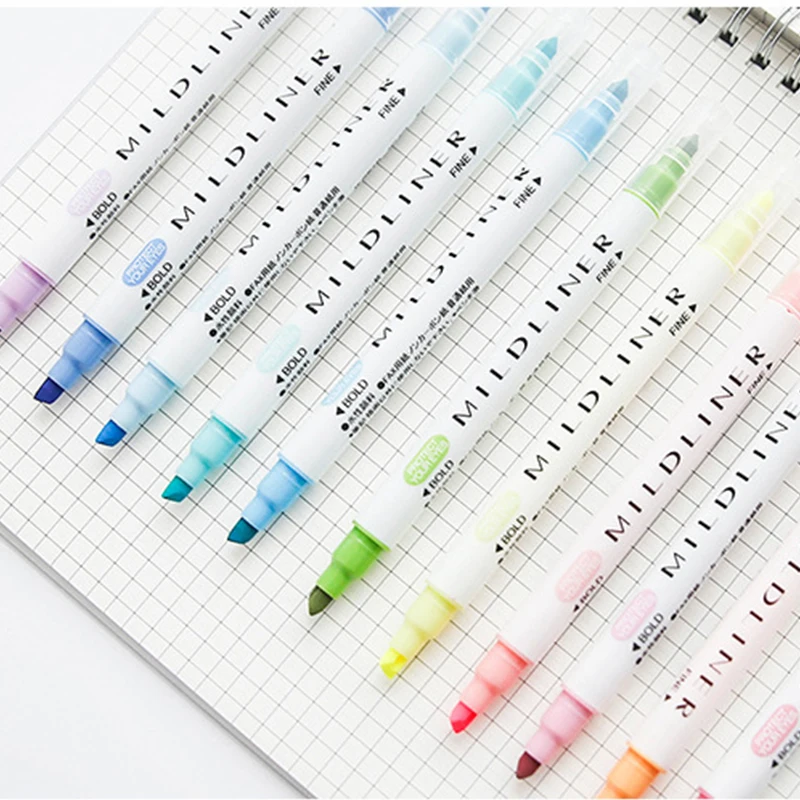 MILDLINE
◀BOLD
MILDLINER
FINE▶
PROTECT
YOUR EYES
◀BOLD
MILDLINER
FINE▶
◀BOLD
●水性顔料 ●FAX用紙 ノンカーボン紙 普通紙用
MILDLINER
FINE▶
◀BOLD
MILDLINER
FINE▶
◀BOLD
●水性顔料 ●FAX用紙 ノンカーボン紙 普通紙用
MILDLINER
FINE▶
PROTECT
YOUR EYES
◀BOLD
MILDLINER
FINE▶
◀BOLD
MILDLINER
FINE▶
PROTECT
YOUR EYES
◀BOLD
MILDLINE
◀BOLD
DLINER
FINE
PROTECT
YOUR EYES
◀BOLD